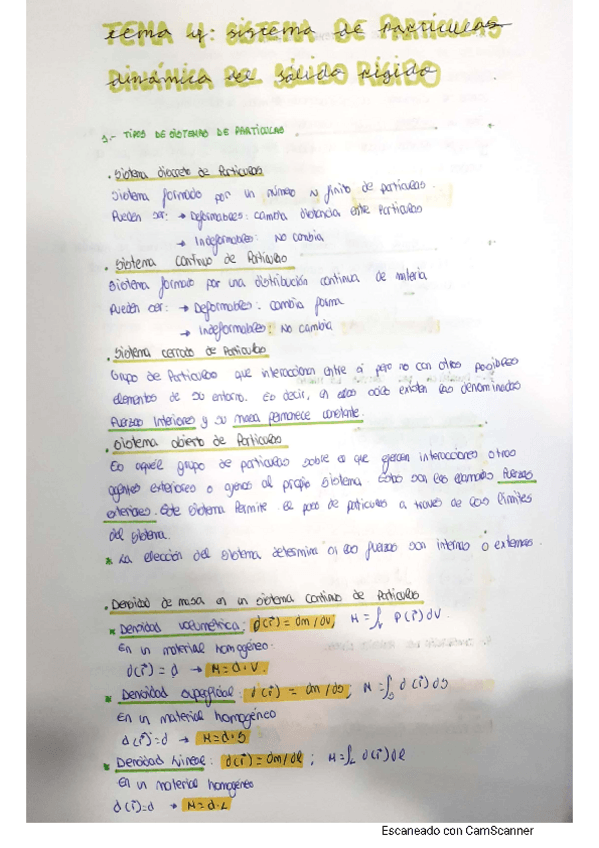 TEMA 4: SISTEMA DE PARTÍCULAS
DINÁMICA DEL SÓLIDO RÍGIDO
1.- TIPOS DE SISTEMAS DE PARTÍCULAS
· Sistema discreto de Partículas
Sistema formado por un número N finito de partículas.
Pueden ser: → Deformables: cambia distancia entre Partículas
→ Indeformables: No cambia
· Sistema continuo de Partículas
Sistema formado por una distribución continua de materia
Pueden ser: → Deformables: cambia forma
→ Indeformables: No cambia
· Sistema cerrado de Partículas
Grupo de Partículas que interaccionan entre sí pero no con otros posibles
elementos de su entorno. Es decir, en este caso existen las denominadas
Fuerzas Interiores y su masa permanece constante.
· Sistema abierto de Partículas
Es aquel grupo de partículas sobre el que ejercen interacciones otros
agentes exteriores o ajenos al propio sistema. Estas son las llamadas Fuerzas
exteriores. Este sistema Permite el paso de partículas a través de los límites
del sistema.
* La elección del sistema determina si las fuerzas son internas o externas.
· Densidad de masa en un sistema continuo de Partículas
* Densidad volumétrica: d(r⃗) = dm/dV; M = ∫ᵥ ρ(r⃗) dV
En un material homogéneo:
d(r⃗) = d → M = d·V.
* Densidad superficial: d(r⃗) = dm/ds; M = ∫ₛ d(r⃗) ds
En un material homogéneo
d(r⃗) = d → M = d·S
* Densidad Lineal: d(r⃗) = dm/dl; M = ∫_L d(r⃗) dl
En un material homogéneo
d(r⃗) = d → M = d·L
Escaneado con CamScanner